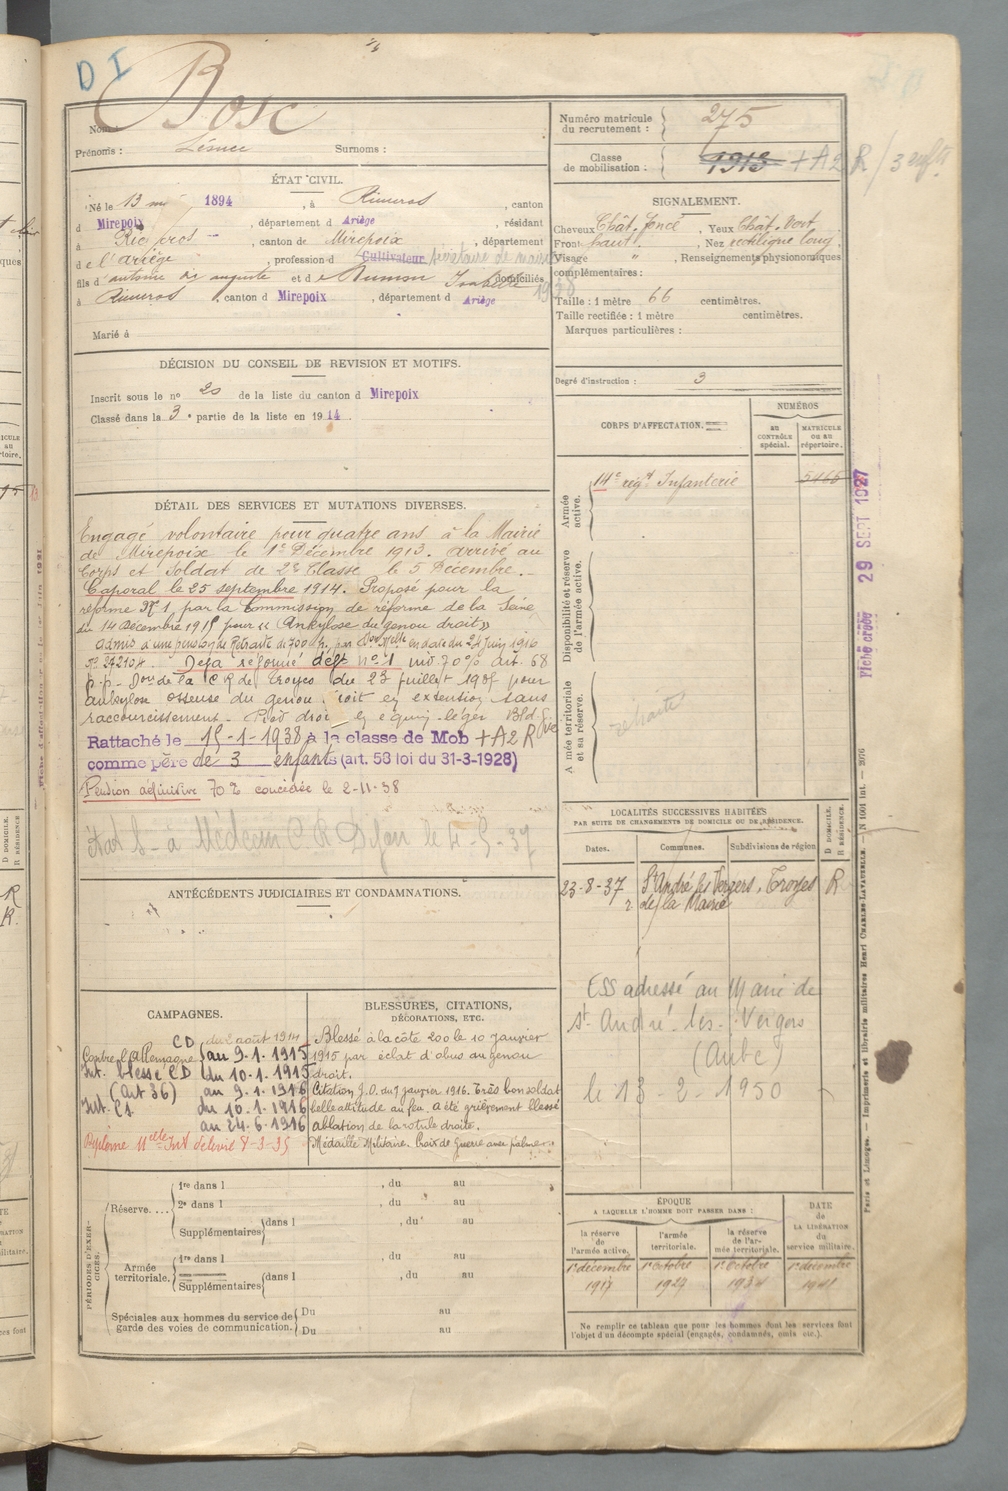 D I
Bosc
Nom
Prénoms : Surnoms :
Numéro matricule du recrutement : 275
Classe de mobilisation : 1913 + A2 R / 3 enfts
ÉTAT CIVIL.
Né le 13 1894, à Rieucros, canton
d Mirepoix, département d Ariège, résidant
à Rieucros, canton de Mirepoix, département
de l'ariège, profession d Cultivateur
fils d'antoine et d domiciliés
à Rieucros, canton d Mirepoix, département d Ariège
1938
Marié à
SIGNALEMENT.
Cheveux Chât. foncé, Yeux Chât. Vert
Front haut, Nez rectiligne long
Visage ", Renseignements physionomiques
complémentaires :
Taille : 1 mètre 66 centimètres.
Taille rectifiée : 1 mètre centimètres.
Marques particulières :
Degré d'instruction : 3
DÉCISION DU CONSEIL DE REVISION ET MOTIFS.
Inscrit sous le no 20 de la liste du canton d Mirepoix
Classé dans la 3e partie de la liste en 1914
CORPS D'AFFECTATION.
NUMÉROS
AU CONTRÔLE spécial.
MATRICULE OU AU répertoire.
Armée active.
14e régt Infanterie 5466
Disponibilité et réserve de l'armée active.
Armée territoriale et sa réserve.
retraité
29 SEPT 1927
Fiche créée
DÉTAIL DES SERVICES ET MUTATIONS DIVERSES.
Engagé volontaire pour quatre ans à la Mairie
de Mirepoix le 1er Décembre 1913. arrivé au
Corps et Soldat de 2e Classe le 5 Décembre.
Caporal le 25 septembre 1914. Proposé pour la
réforme No 1 par la Commission de réforme de la Seine
du 14 Décembre 1915 pour « Ankylose du genou droit »
admis à une pension de Retraite de 700 fr. par en date du 24 Juin 1916
No 24210 Déjà réformé déft no 1 inv. 70% art. 68
p.p. Don de la C R de Troyes du 23 juillet 1935 pour
ankylose osseuse du genou droit en extention sans
raccourcissement - Pied droit en équin léger
Rattaché le 15-1-1938 à la classe de Mob + A2 R
comme père de 3 enfants (art. 58 loi du 31-3-1928)
Pension définitive 70% concédée le 2-11-38
à Médecin C R Dijon le 4-5-37
LOCALITÉS SUCCESSIVES HABITÉES
PAR SUITE DE CHANGEMENTS DE DOMICILE OU DE RÉSIDENCE.
D DOMICILE. R RÉSIDENCE.
Dates. Communes. Subdivisions de région
23-8-37 St André les Vergers, Troyes R
r. de la Mairie
ESS adressé au Maire de
St André-les-Vergers
(Aube)
le 13-2-1950
ANTÉCÉDENTS JUDICIAIRES ET CONDAMNATIONS.
CAMPAGNES.
Contre l'Allemagne CD du 2 août 1914
au 9-1-1915
Int. blessé CD du 10-1-1915
(Art 36) au 9-1-1916
Int. C1 du 10-1-1916
au 24-6-1916
Diplôme 8-3-35
BLESSURES, CITATIONS,
DÉCORATIONS, ETC.
Blessé à la côte 200 le 10 Janvier
1915 par éclat d'obus au genou
droit.
Citation J.O. du 7 janvier 1916. Très bon soldat
belle attitude au feu. a été grièvement blessé
ablation de la rotule droite.
Médaille Militaire. Croix de Guerre avec palme
PÉRIODES D'EXERCICES.
Réserve.... 1re dans l , du au
2e dans l , du au
Supplémentaires dans l , du au
Armée territoriale. 1re dans l , du au
Supplémentaires dans l , du au
Spéciales aux hommes du service de garde des voies de communication. Du au
Du au
ÉPOQUE
A LAQUELLE L'HOMME DOIT PASSER DANS :
la réserve de l'armée active. l'armée territoriale. la réserve de l'armée territoriale.
DATE de LA LIBÉRATION du service militaire.
1er décembre 1917
1er octobre 1927
1er octobre 1934
1er décembre 1941
Ne remplir ce tableau que pour les hommes dont les services font
l'objet d'un décompte spécial (engagés, condamnés, omis etc.).
Paris et Limoges. — Imprimerie et librairie militaires Henri CHARLES-LAVAUZELLE. — N 1001 int. — 2076